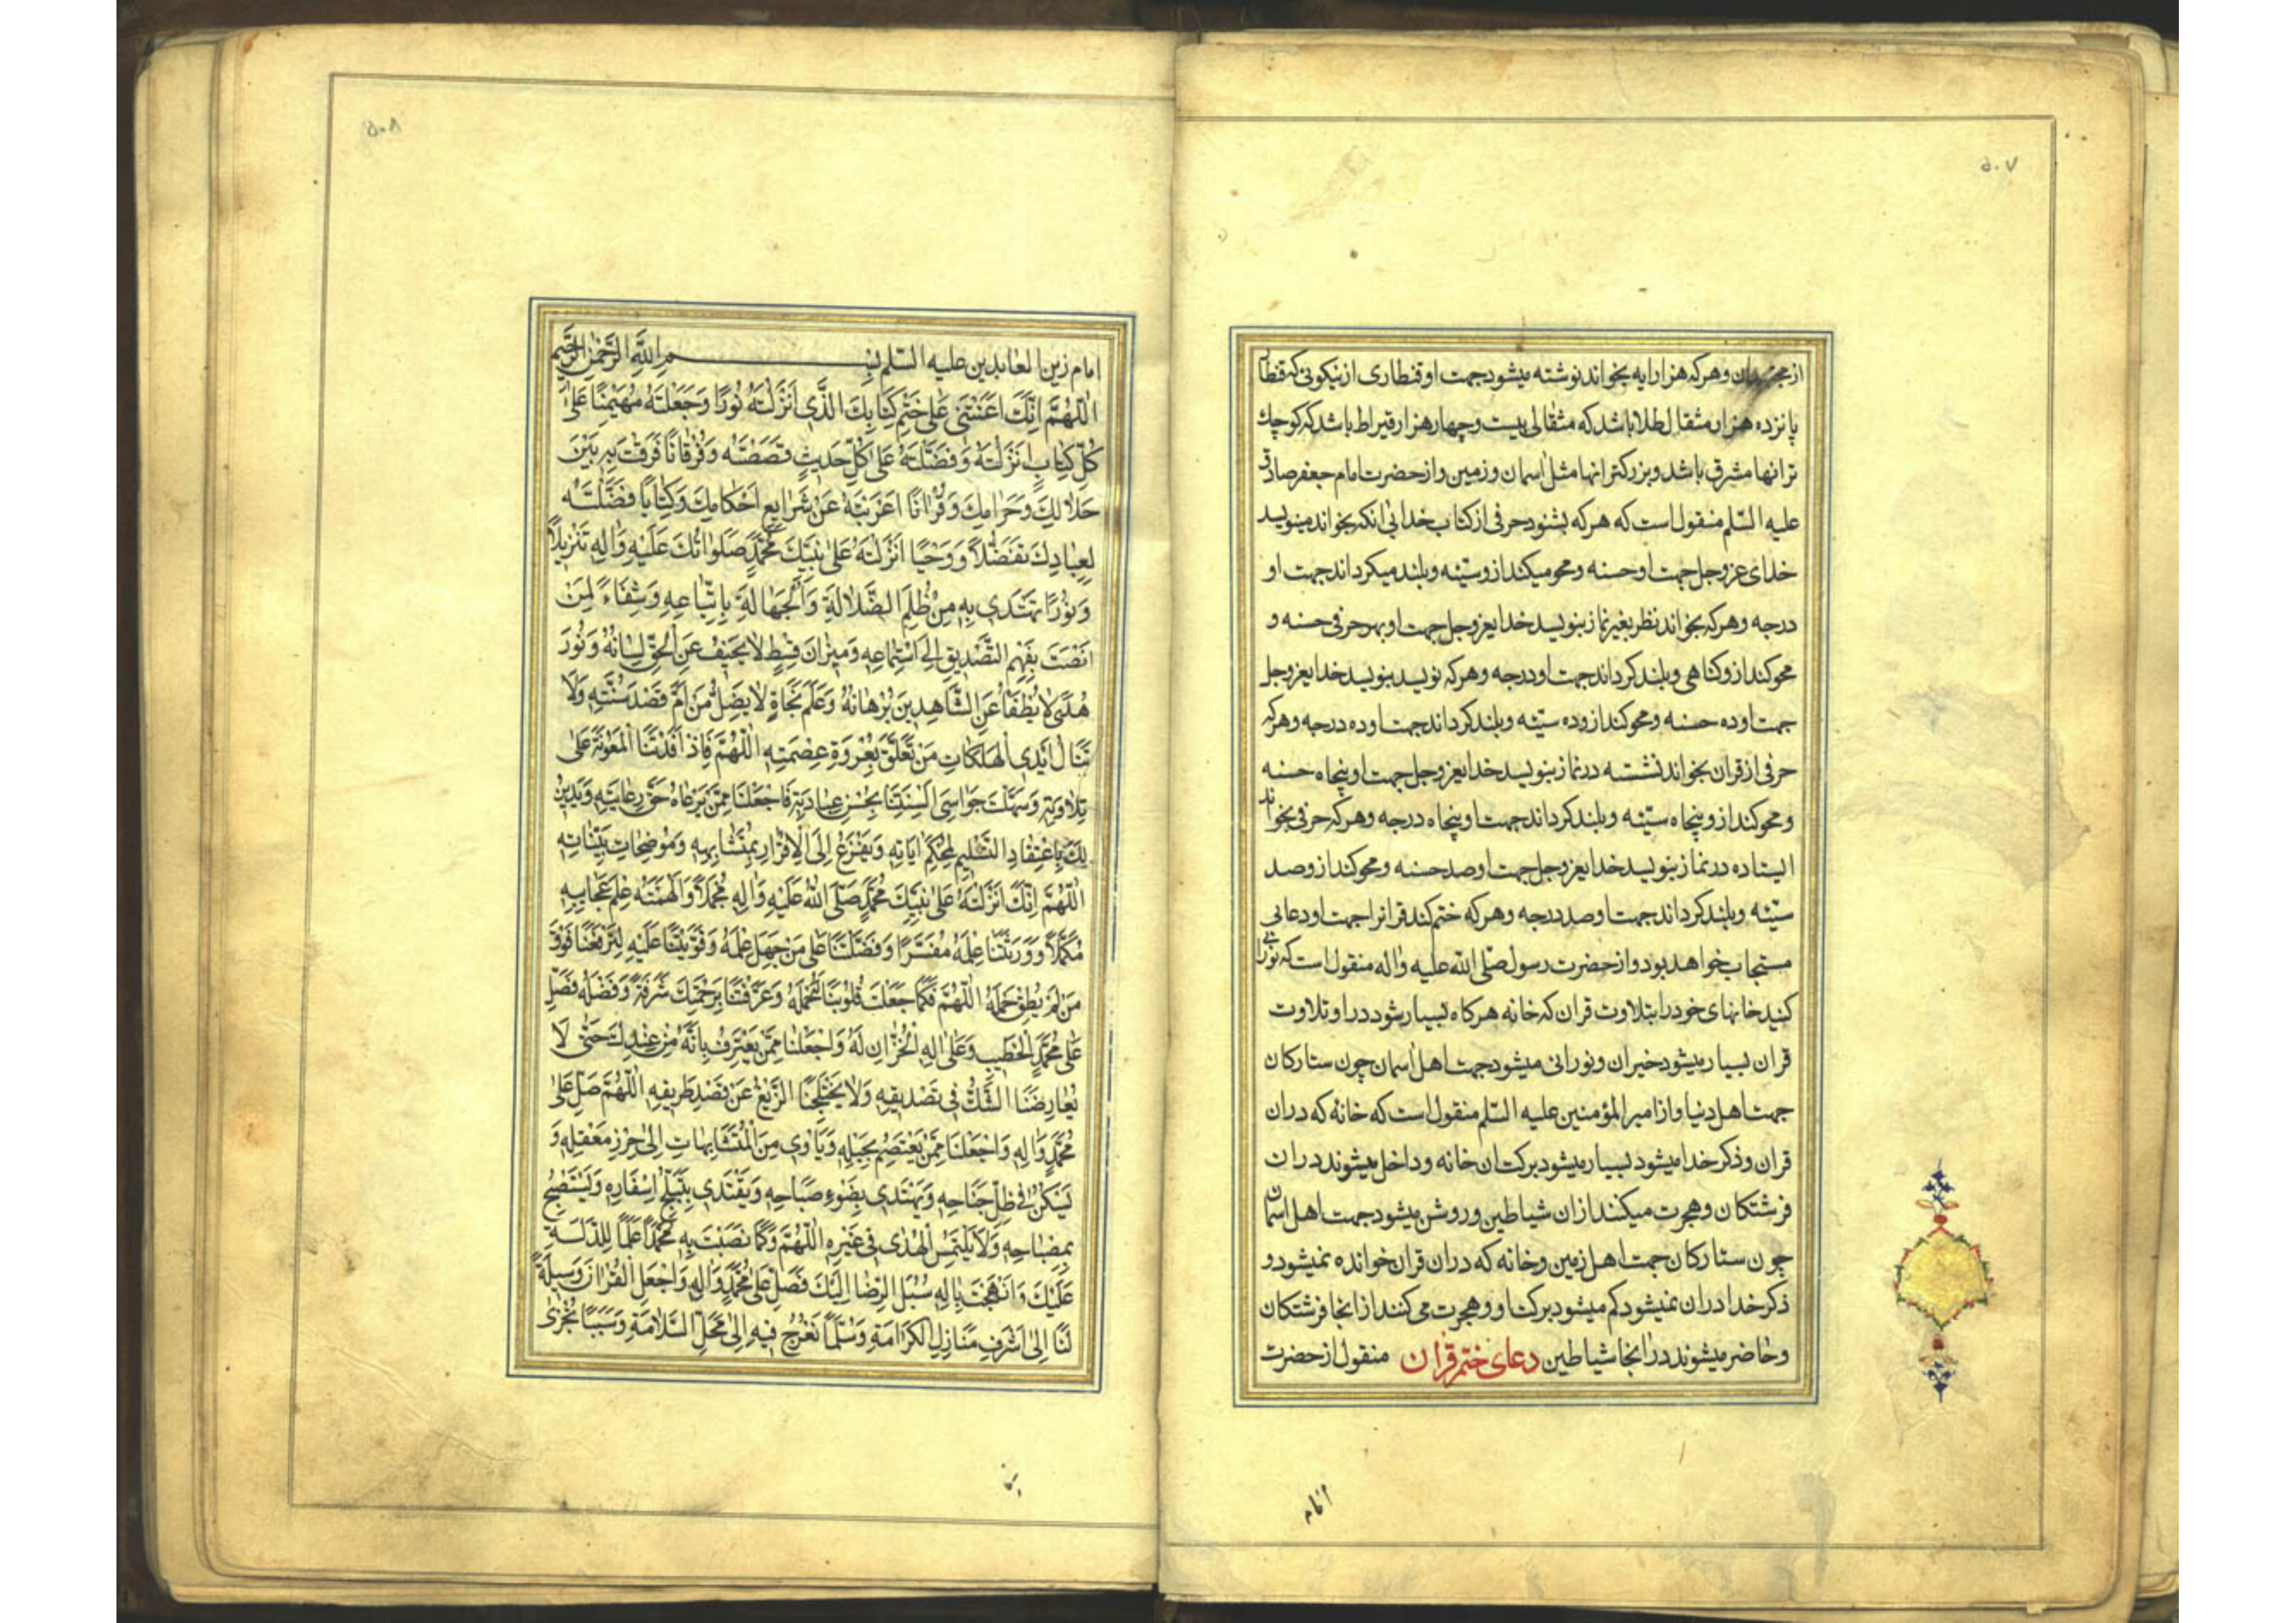 ۵۰۷
از مجتهدان وهرکه هزار ایه بخواند نوشته میشود جهت او قنطاری از نیکوئی که قنطار
پانزده هزار مثقال طلا باشد که مثقالی بیست وچهار هزار قیراط باشد که کوچك
ترانها مثل کوه باشد وبزرکتر انها مثل اسمان وزمین واز حضرت امام جعفر صادق
علیه السّلم منقول است که هرکه بشنود حرفی از کتاب خدا بی انکه بخواند مینویسد
خدای عزوجل جهت او حسنه ومحو میکند از و سیّئه وبلند میکرداند جهت او
درجه وهرکه بخواند نظر بغیر نماز بنویسد خدایعزوجل جهت او بهر حرفی حسنه و
محو کند از و کناهی وبلند کرداند جهت او درجه وهرکه نویسد بنویسد خدایعزوجل
جهت او ده حسنه ومحو کند از و ده سیّئه وبلند کرداند جهت او ده درجه وهرکه
حرفی از قران بخواند نشسته در نماز بنویسد خدایعزوجل جهت او پنجاه حسنه
ومحو کند از و پنجاه سیّئه وبلند کرداند جهت او پنجاه درجه وهرکه حرفی بخواند
ایستاده در نماز بنویسد خدایعزوجل جهت او صد حسنه ومحو کند از و صد
سیّئه وبلند کرداند جهت او صد درجه وهرکه ختم کند قرانرا جهت او دعائی
مستجاب خواهد بود واز حضرت رسول صلّی الله علیه واله منقول است که نورانی
کنید خانهای خود را بتلاوت قران که خانه هرکاه بسیار شود در او تلاوت
قران بسیار میشود خیر ان ونورانی میشود جهت اهل اسمان چون ستارکان
جهت اهل دنیا واز امیر المؤمنین علیه السّلم منقول است که خانه که در ان
قران وذکر خدا میشود بسیار میشود برکت ان خانه وداخل میشوند در ان
فرشتکان وهجرت میکنند از ان شیاطین وروشن میشود جهت اهل اسمان
چون ستارکان جهت اهل زمین وخانه که در ان قران خوانده نمیشود و
ذکر خدا در ان نمیشود کم میشود برکت او وهجرت می کنند از انجا فرشتکان
وحاضر میشوند در انجا شیاطین دعای ختم قران منقول از حضرت
امام
۵۰۸
امام زین العابدین علیه السّلم بِسْمِ اللهِ الرَّحْمٰنِ الرَّحیمِ
اَللّٰهُمَّ اِنَّكَ اَعَنْتَنی عَلٰی خَتْمِ کِتٰابِكَ الَّذی اَنْزَلْتَهُ نُورًا وَجَعَلْتَهُ مُهَیْمِنًا عَلٰی
کُلِّ کِتٰابٍ اَنْزَلْتَهُ وَفَضَّلْتَهُ عَلٰی کُلِّ حَدیثٍ قَصَصْتَهُ وَفُرْقٰانًا فَرَقْتَ بِهِ بَیْنَ
حَلٰالِكَ وَحَرٰامِكَ وَقُرْاٰنًا اَعْرَبْتَ بِهِ عَنْ شَرٰایِعِ اَحْکٰامِكَ وَکِتٰابًا فَصَّلْتَهُ
لِعِبٰادِكَ تَفْصیلًا وَوَحْیًا اَنْزَلْتَهُ عَلٰی نَبِیِّكَ مُحَمَّدٍ صَلَوٰاتُكَ عَلَیْهِ وَاٰلِهِ تَنْزیلًا
وَنُورًا نَهْتَدی بِهِ مِنْ ظُلَمِ الضَّلٰالَةِ وَالْجَهٰالَةِ بِاِتِّبٰاعِهِ وَشِفٰاءً لِمَنْ
اَنْصَتَ بِفَهْمِ التَّصْدیقِ اِلَی اسْتِمٰاعِهِ وَمیزٰانَ قِسْطٍ لٰا یَحیفُ عَنِ الْحَقِّ لِسٰانُهُ وَنُورَ
هُدًی لٰا یُطْفَأُ عَنِ الشّٰاهِدینَ بُرْهٰانُهُ وَعَلَمَ نَجٰاةٍ لٰا یَضِلُّ مَنْ اَمَّ قَصْدَ سُنَّتِهِ وَلٰا
تَنٰالُ اَیْدِی الْهَلَکٰاتِ مَنْ تَعَلَّقَ بِعُرْوَةِ عِصْمَتِهِ اَللّٰهُمَّ فَاِذْ اَفَدْتَنَا الْمَعُونَةَ عَلٰی
تِلٰاوَتِهِ وَسَهَّلْتَ جَوٰاسِیَ اَلْسِنَتِنٰا بِحُسْنِ عِبٰارَتِهِ فَاجْعَلْنٰا مِمَّنْ یَرْعٰاهُ حَقَّ رِعٰایَتِهِ وَیَدینُ
لَكَ بِاِعْتِقٰادِ التَّسْلیمِ لِمُحْکَمِ اٰیٰاتِهِ وَیَفْزَعُ اِلَی الْاِقْرٰارِ بِمُتَشٰابِهِهِ وَمُوضِحٰاتِ بَیِّنٰاتِهِ
اَللّٰهُمَّ اِنَّكَ اَنْزَلْتَهُ عَلٰی نَبِیِّكَ مُحَمَّدٍ صَلَّی اللهُ عَلَیْهِ وَاٰلِهِ مُجْمَلًا وَاَلْهَمْتَهُ عِلْمَ عَجٰایِبِهِ
مُکَمَّلًا وَوَرَّثْتَنٰا عِلْمَهُ مُفَسَّرًا وَفَضَّلْتَنٰا عَلٰی مَنْ جَهِلَ عِلْمَهُ وَقَوَّیْتَنٰا عَلَیْهِ لِتَرْفَعَنٰا فَوْقَ
مَنْ لَمْ یُطِقْ حَمْلَهُ اَللّٰهُمَّ فَکَمٰا جَعَلْتَ قُلُوبَنٰا لَهُ حَمَلَةً وَعَرَّفْتَنٰا بِرَحْمَتِكَ شَرَفَهُ وَفَضْلَهُ فَصَلِّ
عَلٰی مُحَمَّدٍ الْخَطیبِ وَعَلٰی اٰلِهِ الْخُزّٰانِ لَهُ وَاجْعَلْنٰا مِمَّنْ یَعْتَرِفُ بِاَنَّهُ مِنْ عِنْدِكَ حَتّٰی لٰا
یُعٰارِضَنَا الشَّكُّ فی تَصْدیقِهِ وَلٰا یَخْتَلِجَنَا الزَّیْغُ عَنْ قَصْدِ طَریقِهِ اَللّٰهُمَّ صَلِّ عَلٰی
مُحَمَّدٍ وَاٰلِهِ وَاجْعَلْنٰا مِمَّنْ یَعْتَصِمُ بِحَبْلِهِ وَیَأْوی مِنَ الْمُتَشٰابِهٰاتِ اِلٰی حِرْزِ مَعْقِلِهِ وَ
یَسْکُنُ فی ظِلِّ جَنٰاحِهِ وَیَهْتَدی بِضَوْءِ صَبٰاحِهِ وَیَقْتَدی بِتَبَلُّجِ اِسْفٰارِهِ وَیَسْتَصْبِحُ
بِمِصْبٰاحِهِ وَلٰا یَلْتَمِسُ الْهُدٰی فی غَیْرِهِ اَللّٰهُمَّ وَکَمٰا نَصَبْتَ بِهِ مُحَمَّدًا عَلَمًا لِلدَّلٰالَةِ
عَلَیْكَ وَاَنْهَجْتَ بِاٰلِهِ سُبُلَ الرِّضٰا اِلَیْكَ فَصَلِّ عَلٰی مُحَمَّدٍ وَاٰلِهِ وَاجْعَلِ الْقُرْاٰنَ وَسیلَةً
لَنٰا اِلٰی اَشْرَفِ مَنٰازِلِ الْکَرٰامَةِ وَسُلَّمًا نَعْرُجُ فیهِ اِلٰی مَحَلِّ السَّلٰامَةِ وَسَبَبًا نُجْزٰی
به